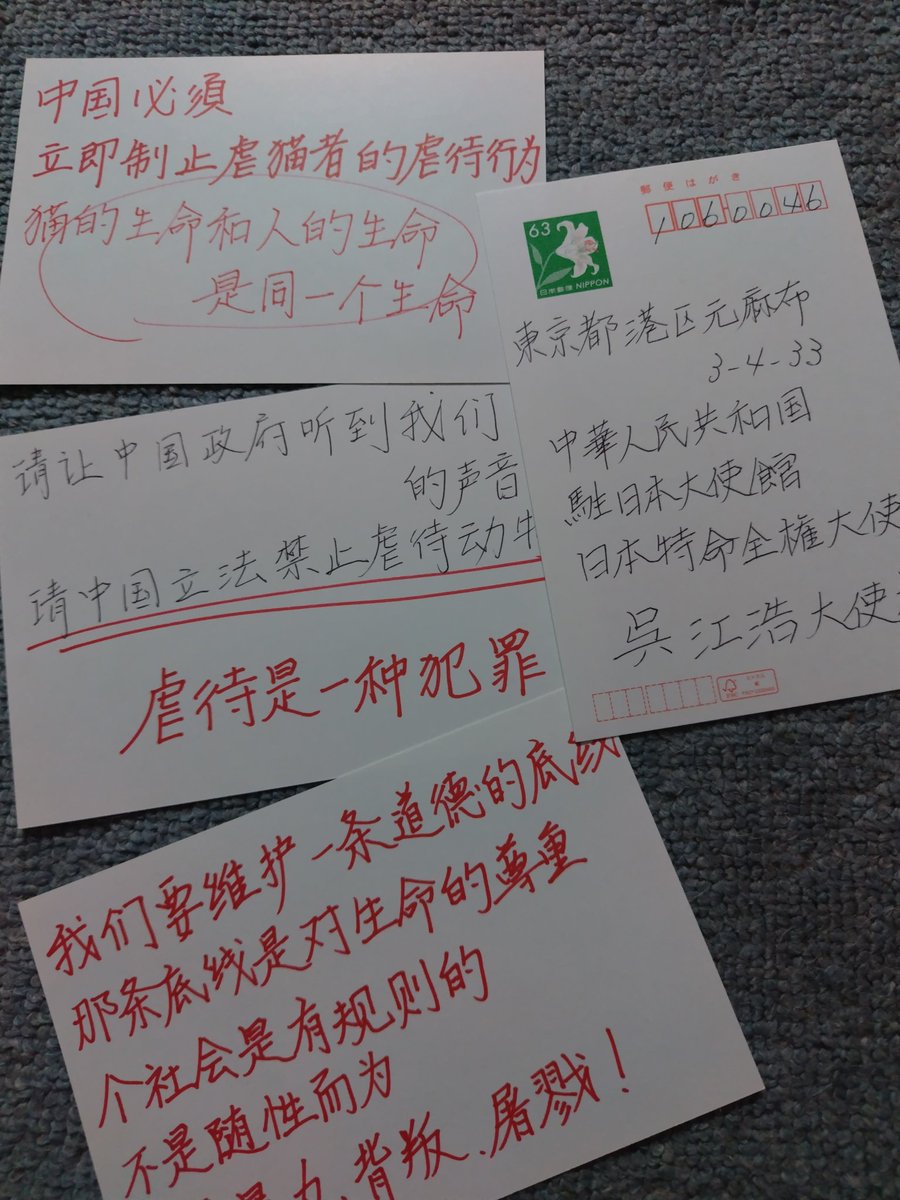 中国必須
立即制止虐猫者的虐待行为
猫的生命和人的生命
是同一个生命
郵便はがき
1060046
63
日本郵便 NIPPON
東京都港区元麻布
3-4-33
中華人民共和国
駐日本大使館
日本特命全権大使
呉江浩大使
请让中国政府听到我们
的声音
请中国立法禁止虐待动
虐待是一种犯罪
我们要维护一条道德的底线
那条底线是对生命的尊重
个社会是有规则的
不是随性而为
力、背叛、屠戮！